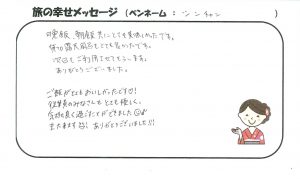 旅の幸せメッセージ(ペンネーム: シンチャン )
夕食、朝食共にとても美味しかったです。
貸切露天風呂もとても良かったです。
次回もご利用させてもらいます。
ありがとうございました。
ご飯がとてもおいしかったです!!
従業員のみなさんもとても優しく、
気持ち良く過ごすことができました
また来ますね! ありがとうございました!!